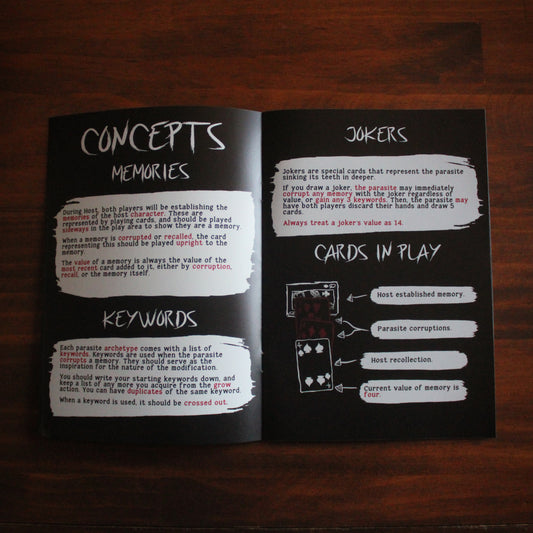 CONCEPTS
MEMORIES
During Host, both players will be establishing the
memories of the host character. These are
represented by playing cards, and should be played
sideways in the play area to show they are a memory.
When a memory is corrupted or recalled, the card
representing this should be played upright to the
memory.
The value of a memory is always the value of the
most recent card added to it, either by corruption,
recall, or the memory itself.
KEYWORDS
Each parasite archetype comes with a list of
keywords. Keywords are used when the parasite
corrupts a memory. They should serve as the
inspiration for the nature of the modification.
You should write your starting keywords down, and
keep a list of any more you acquire from the grow
action. You can have duplicates of the same keyword.
When a keyword is used, it should be crossed out.
JOKERS
Jokers are special cards that represent the parasite
sinking its teeth in deeper.
If you draw a joker, the parasite may immediately
corrupt any memory with the joker regardless of
value, or gain any 3 keywords. Then, the parasite may
have both players discard their hands and draw 5
cards.
Always treat a joker's value as 14.
CARDS IN PLAY
Host established memory.
Parasite corruptions.
Host recollection.
Current value of memory is
four.